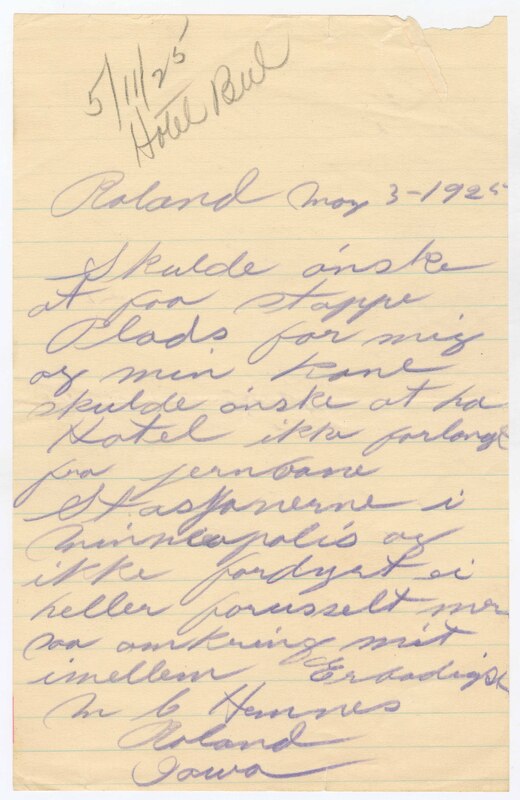 5/11/25
Hotel Bul
Roland May 3-1925
Skulde ønske
at faa stoppe
Plads for mig
og min kone
skulde ønske at ha
Hotel ikke forlangt
fra jernbane
Stasjonerne i
Minneapolis og
ikke fordyrt ei
heller forusselt men
saa omkring mit
imellem Erbødigst
M C Hennes
Roland
Iowa